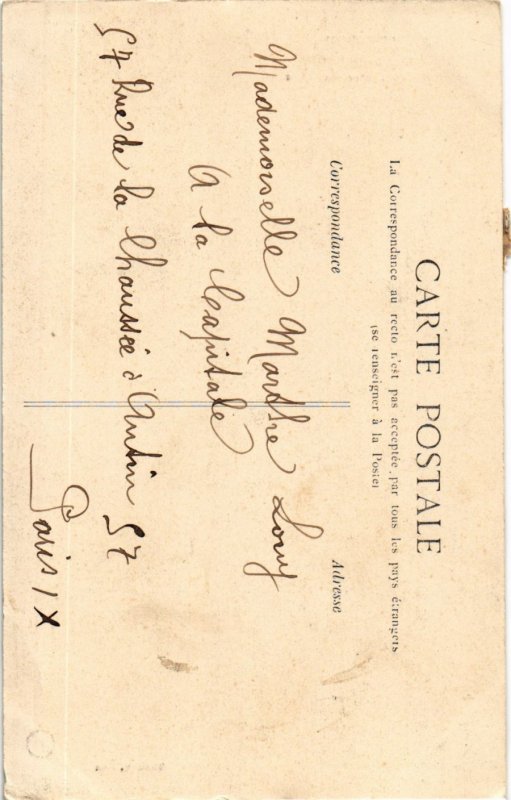 CARTE POSTALE
La Correspondance au recto n'est pas acceptée par tous les pays étrangers
(se renseigner à la Poste)
Correspondance
Adresse
Mademoiselle Marthe Louy
A la Capitale
57 Rue de la Chaussée d'Antin 57
Paris IX